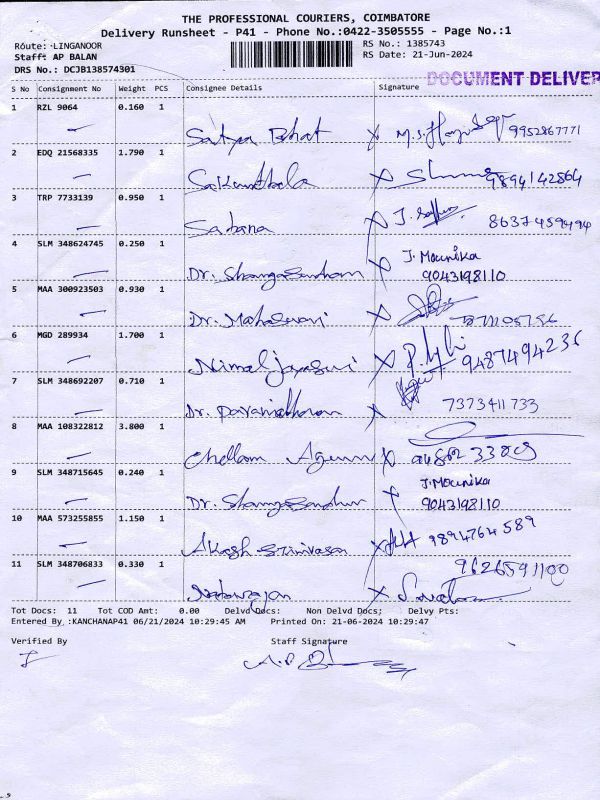 THE PROFESSIONAL COURIERS, COIMBATORE
Delivery Runsheet - P41 - Phone No.:0422-3505555 - Page No.:1
Route: LINGANOOR RS No.: 1385743
Staff: AP BALAN RS Date: 21-Jun-2024
DRS No.: DCJB138574301 DOCUMENT DELIVER
S No Consignment No Weight PCS Consignee Details Signature
1 RZL 9064 0.160 1
Satya Bhat 9952867771
2 EDQ 21568335 1.790 1
Sakunthala 9894142864
3 TRP 7733139 0.950 1
Sabana 8637459494
4 SLM 348624745 0.250 1 J. Mounika
Dr. Shanga Sundram 9043198110
5 MAA 300923503 0.930 1
Dr. Maheswari
6 MGD 289934 1.700 1
Nirmal 9487494236
7 SLM 348692207 0.710 1
Dr. 7373411733
8 MAA 108322812 3.800 1
Chellam
9 SLM 348715645 0.240 1 J. Mounika
Dr. 9043198110
10 MAA 573255855 1.150 1
Akash Srinivasan 9894764589
11 SLM 348706833 0.330 1 9626591100
Natarajan
Tot Docs: 11 Tot COD Amt: 0.00 Delvd Docs: Non Delvd Docs; Delvy Pts:
Entered By :KANCHANAP41 06/21/2024 10:29:45 AM Printed On: 21-06-2024 10:29:47
Verified By Staff Signature